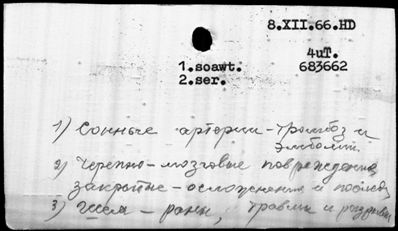 8.XII.66.HD
4uT.
1.soawt. 683662
2.ser.
1) Сонные артерии - тромбоз и
эмболия.
2) Черепно-мозговые повреждения,
закрытые - осложнения и послед.
3) Шея - раны, травмы и